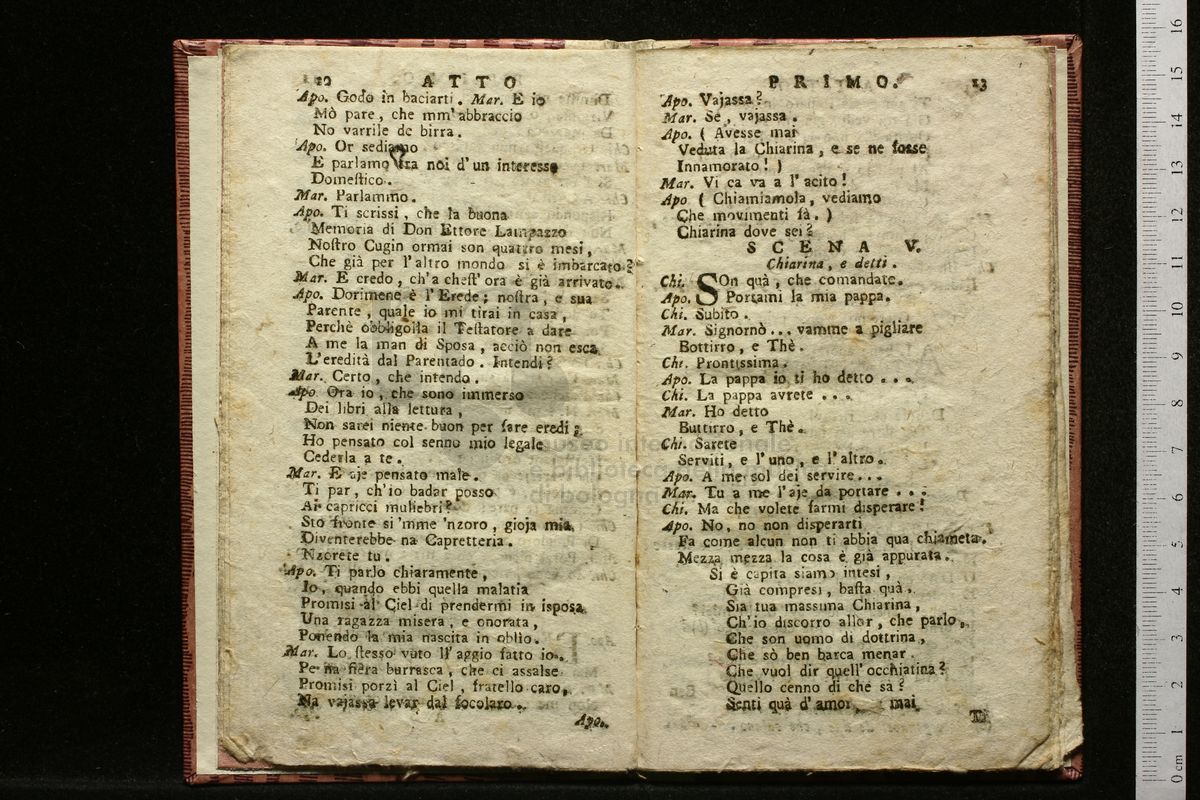 12 ATTO
Apo. Godo in baciarti. Mar. E io
Mò pare, che mm'abbraccio
No varrile de birra.
Apo. Or sediamo
E parlamo fra noi d'un interesse
Domeſtico.
Mar. Parlammo.
Apo. Ti scrissi, che la buona
Memoria di Don Ettore Lampazzo
Noſtro Cugin ormai son quattro mesi,
Che già per l'altro mondo si è imbarcato?
Mar. E credo, ch'a cheſt'ora è già arrivato.
Apo. Dorimene è l'Erede; noſtra, e sua
Parente, quale io mi tirai in casa,
Perchè obbligolla il Teſtatore a dare
A me la man di Sposa, acciò non esca
L'eredità dal Parentado. Intendi?
Mar. Certo, che intendo.
Apo Ora io, che sono immerso
Dei libri alla lettura,
Non sarei niente buon per fare eredi;
Ho pensato col senno mio legale
Cederla a te.
Mar. E aje pensato male.
Ti par, ch'io badar posso
Ai capricci muliebri?
Sto fronte si 'mme 'nzoro, gioja mia,
Diventerebbe na Capretteria.
'Nzorete tu.
Apo. Ti parlo chiaramente,
Io, quando ebbi quella malatia
Promisi al Ciel di prendermi in isposa
Una ragazza misera, e onorata,
Ponendo la mia nascita in oblio.
Mar. Lo ſtesso vuto ll'aggio fatto io.
Pe na fiera burrasca, che ci assalse
Promisi porzì al Ciel, fratello caro,
Na vajassa levar dal focolaro.
Apo.
PRIMO. 13
Apo. Vajassa?
Mar. Sè, vajassa.
Apo. ( Avesse mai
Veduta la Chiarina, e se ne fosse
Innamorato! )
Mar. Vi ca va a l'acito!
Apo ( Chiamiamola, vediamo
Che movimenti fà. )
Chiarina dove sei?
SCENA V.
Chiarina, e detti.
Chi. SOn quà, che comandate.
Apo. Portami la mia pappa.
Chi. Subito.
Mar. Signornò... vamme a pigliare
Bottirro, e Thè.
Chi. Prontissima.
Apo. La pappa io ti ho detto...
Chi. La pappa avrete...
Mar. Ho detto
Buttirro, e Thè.
Chi. Sarete
Serviti, e l'uno, e l'altro.
Apo. A me sol dei servire...
Mar. Tu a me l'aje da portare...
Chi. Ma che volete farmi disperare!
Apo. No, no non disperarti
Fa come alcun non ti abbia qua chiameta.
Mezza mezza la cosa è già appurata.
Si è capita siamo intesi,
Già compresi, baſta quà.
Sia tua massuma Chiarina,
Ch'io discorro allor, che parlo,
Che son uomo di dottrina,
Che sò ben barca menar.
Che vuol dir quell'occhiatina?
Quello cenno di che sa?
Senti quà d'amor, mai